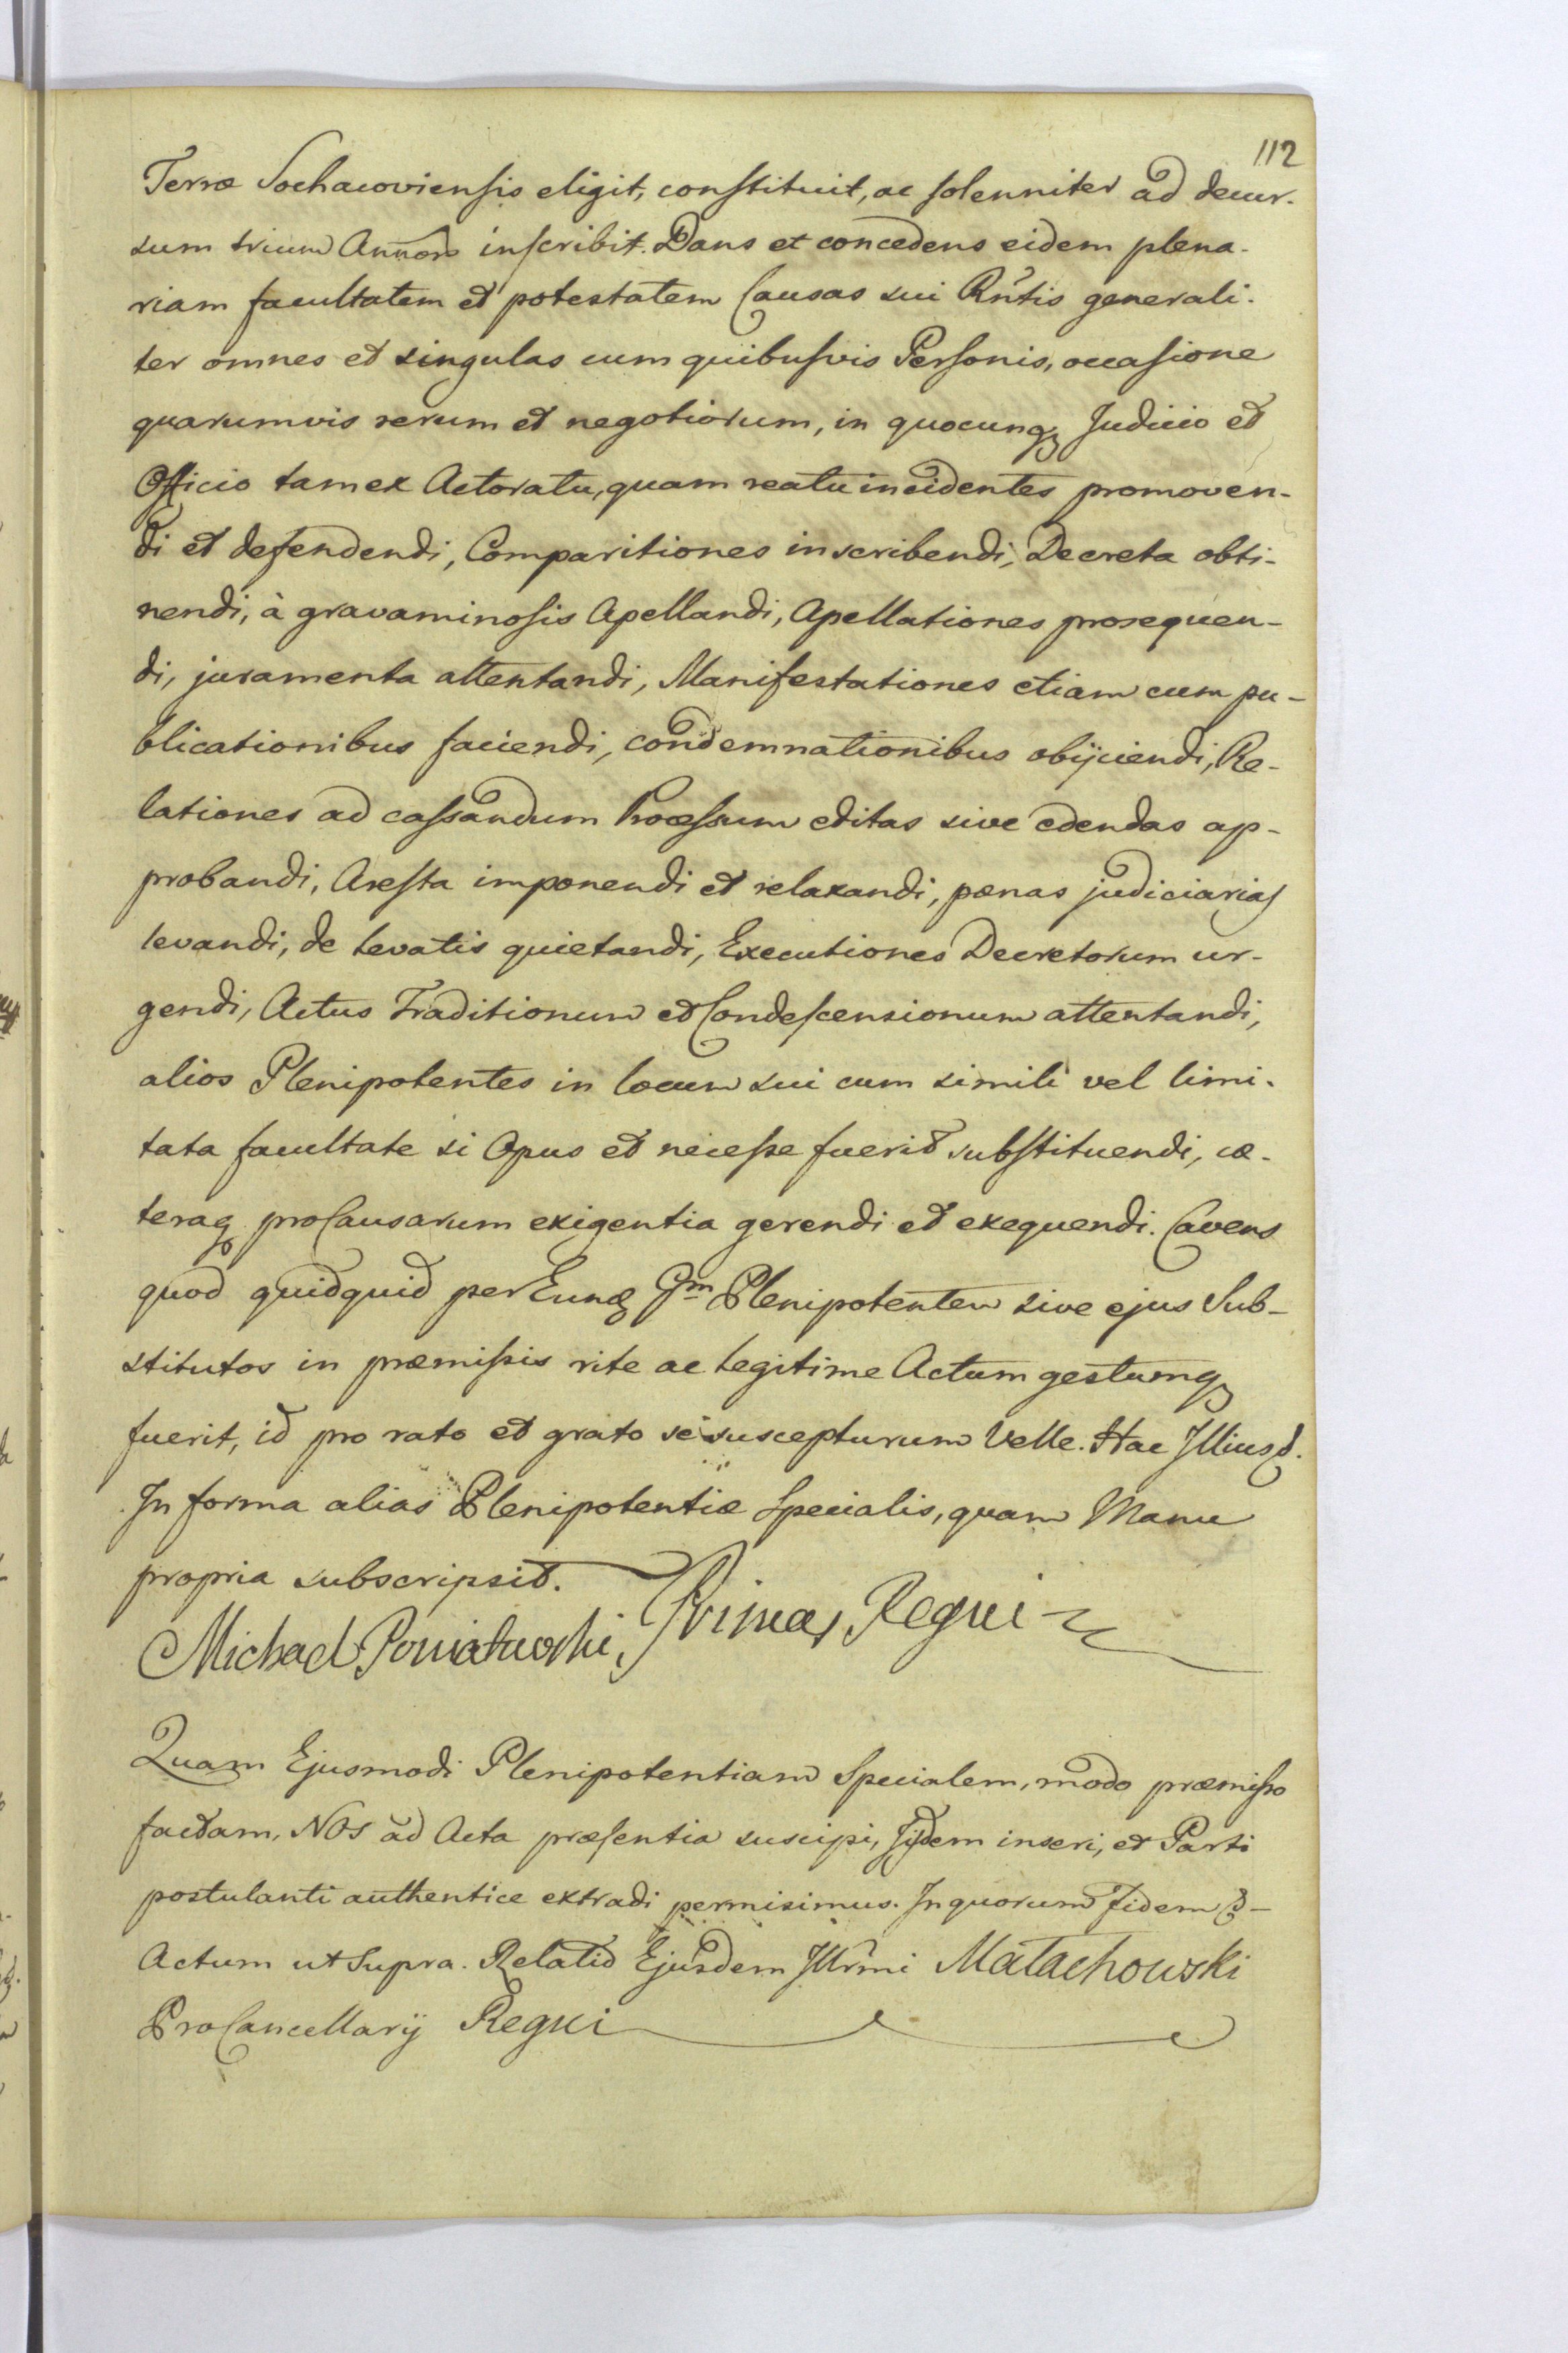 112
Terræ Sochacoviensis eligit, constituit, ac solenniter ad decur-
sum trium Annor inscribit. Dans et concedens eidem plena-
riam facultatem et potestatem Causas sui Rntis generali-
ter omnes et singulas cum quibusvis Personis, occasione
quarumvis rerum et negotiorum, in quocunq Judicio et
Officio tam ex Actoratu, quam reatu incidentes promoven-
di et defendendi, Comparitiones inscribendi, Decreta obti-
nendi, à gravaminosis Apellandi, Apellationes prosequen-
di, juramenta attentandi, Manifestationes etiam cum pu-
blicationibus faciendi, condemnationibus obijciendi, Re-
lationes ad cassandum Processum editas sive edendas ap-
probandi, Aresta imponendi et relaxandi, pœnas judiciarias
levandi, de levatis quietandi, Executiones Decretorum ur-
gendi, Actus Traditionum et Condescensionum attentandi,
alios Plenipotentes in locum sui cum simili vel limi-
tata facultate si Opus et necesse fuerit substituendi, cæ-
teraq pro Causarum exigentia gerendi et exequendi. Cavens
quod quidquid per Eund Gm Plenipotentem sive ejus Sub-
stitutos in præmissis rite ac legitime Actum gestumq
fuerit, id pro rato et grato se suscepturum velle. Hac Illiusd.
In forma alias Plenipotentiæ Specialis, quam Manu
propria subscripsit.
Michael Poniatowski, Primas Regni
Quam Ejusmodi Plenipotentiam Specialem, modo præmisso
factam, NOS ad Acta præsentia suscipi, ijsdem inseri, et Parti
postulanti authentice extradi permisimus. In quorum Fidem &
Actum ut Supra. Relatio Ejusdem Illrmi Małachowski
ProCancellarij Regni